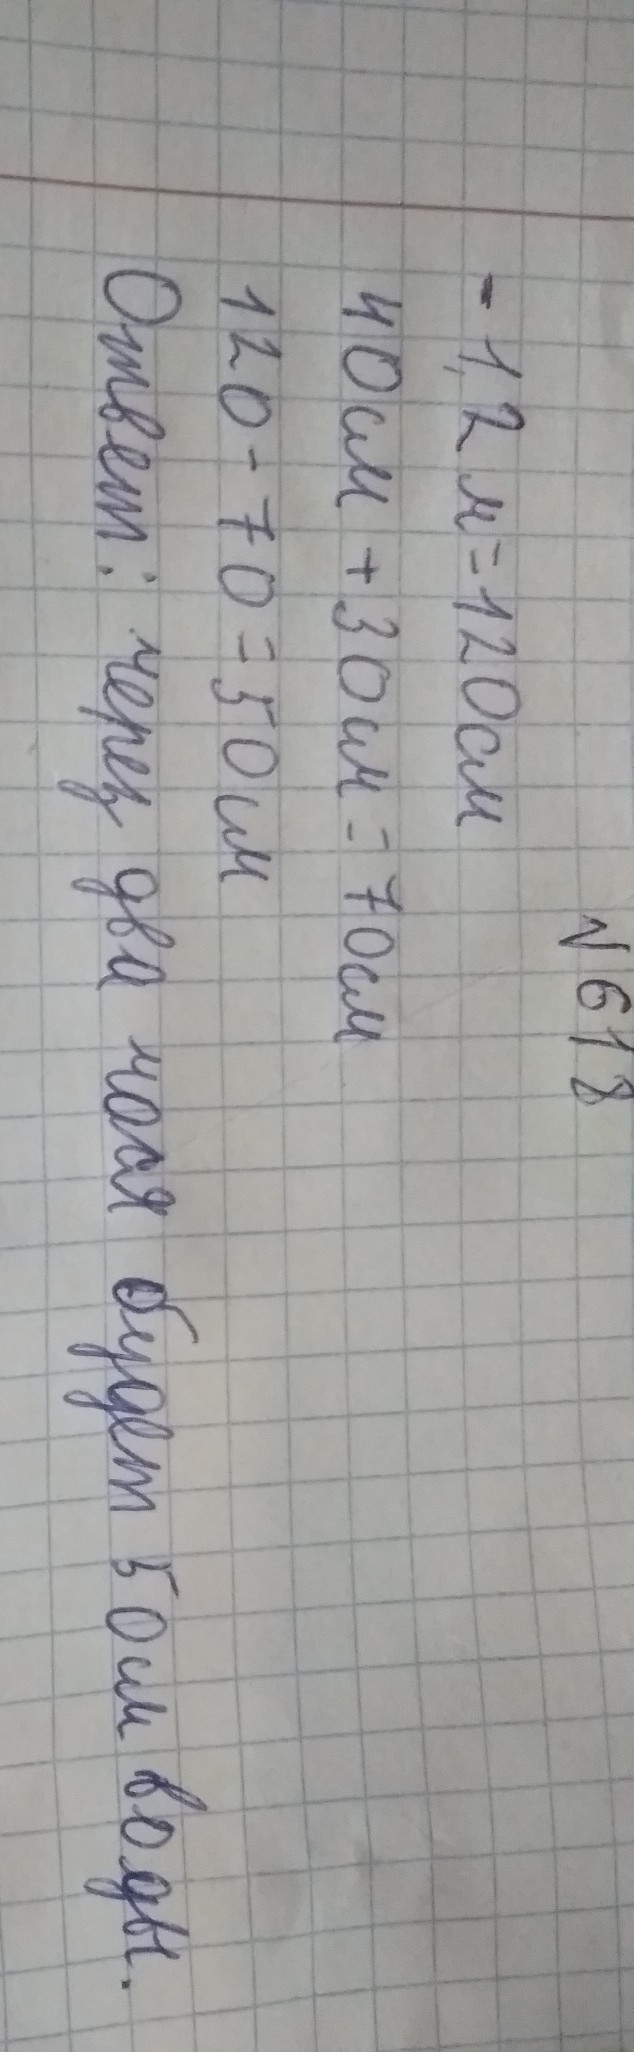 №618
- 1,2 м = 120см
40см + 30см = 70см
120 - 70 = 50см
Ответ: через два часа будет 50см воды.